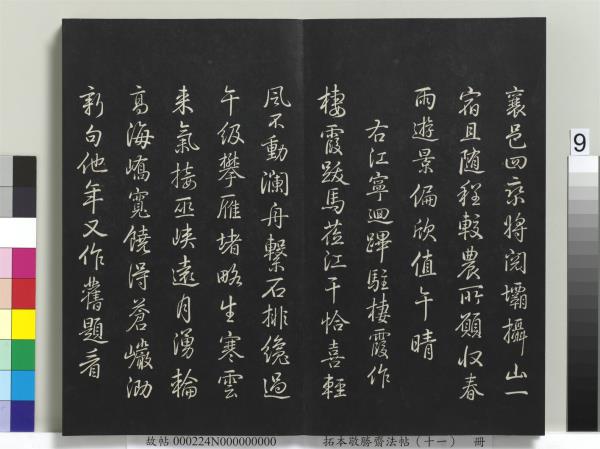 襄邑回京將閱壩攝山一
宿且随程較農所願收春
雨遊景偏欣值午晴
右江寧迴蹕駐棲霞作
棲霞跋馬莅江干恰喜輕
風不動瀾舟繫石排纔過
午級攀雁堵略生寒雲
来氣接巫峽遠月湧輪
高海嶠寬饒得蒼巗泐
新句他年又作舊題看
9
故帖 000224N000000000 拓本敬勝齋法帖（十一） 冊